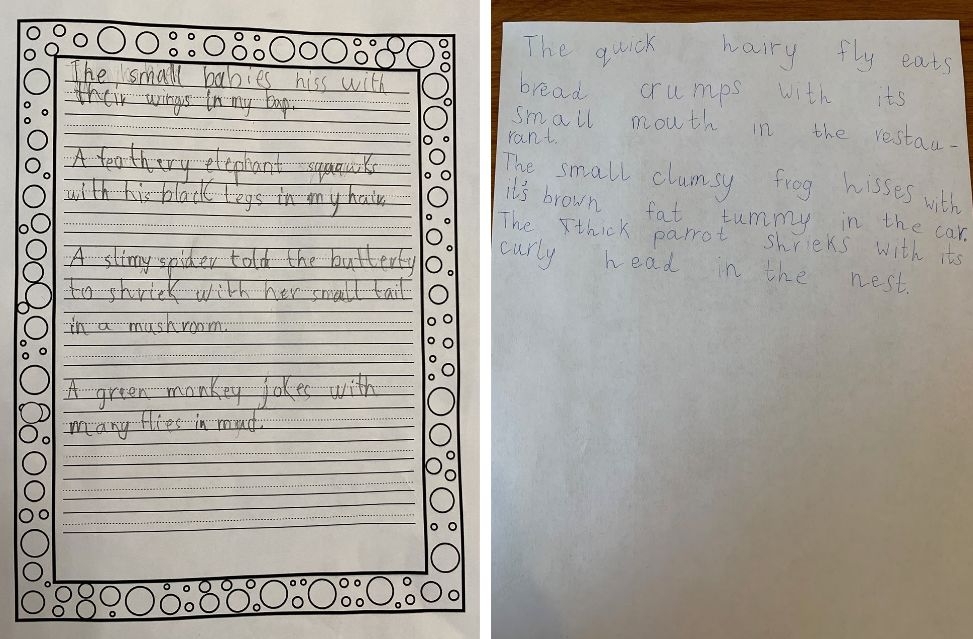 The small babies hiss with
their wings in my bag.
A feathery elephant squawks
with his black legs in my hair.
A slimy spider told the butterfly
to shriek with her small tail
in a mushroom.
A green monkey jokes with
many flies in mud.
The quick hairy fly eats
bread crumps with its
small mouth in the restau-
rant.
The small clumsy frog hisses with
it's brown fat tummy in the car.
The thick parrot shrieks with its
curly head in the nest.